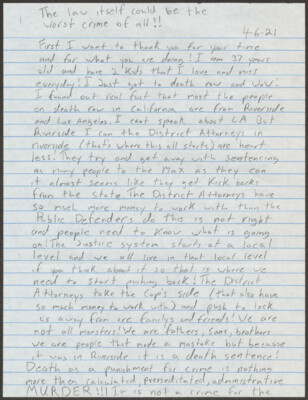 The law itself could be the
worst crime of all!!
4-6-21
First I want to thank you for your time
and for what you are doing! I am 37 years
old and have 2 kids that I love and miss
everyday! I Just got to death row and WOW!
I found out real fast that most the people
on death row in California are from Riverside
and Los Angeles. I cant speak about LA But
Riverside I can the District Attorneys in
riverside (thats where this all starts) are heart
less. They try and get away with sentencing
as many people to the Max as they can
it almost seems like they get kick backs
from the state. The District Attorneys have
so much more money to work with than the
Public Defenders do this is not right
and people need to know what is going
on! The Justice system starts at a local
level and we all live in that local level
if you think about it so that is where we
need to start pushing back! The District
Attorneys take the Cop's side (that also have
so much money to work with) and push to lock
us away from are family's and friends! We are
not all monsters! We are fathers, sons, brothers
we are people that made a mistake but because
it was in Riverside it is a death sentence!
Death as a punishment for crime is nothing
more then calculated, premeditated, administrative
MURDER!!! It is not a crime for the